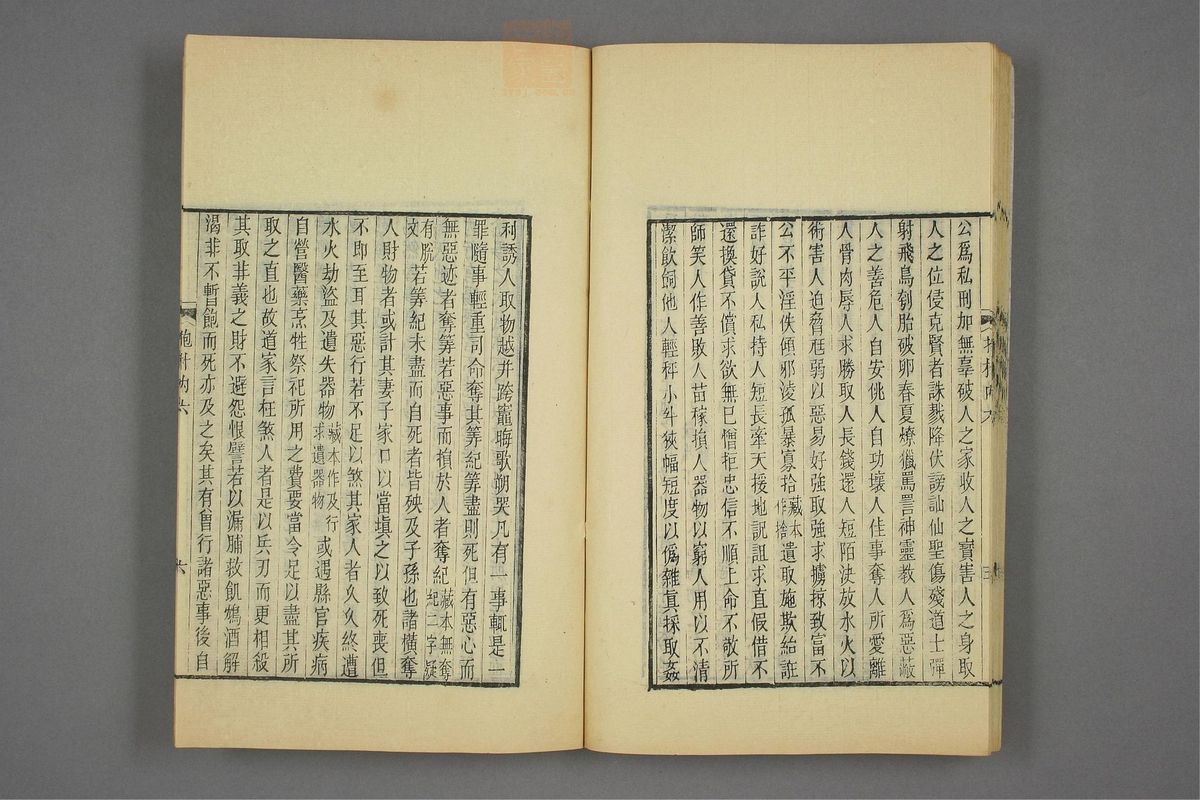 公爲私刑加無辜破人之家收人之寶害人之身取
人之位侵克賢者誅戮降伏謗訕仙聖傷殘道士彈
射飛鳥刳胎破卵春夏燎獵罵詈神靈教人爲惡蔽
人之善危人自安佻人自功壞人佳事奪人所愛離
人骨肉辱人求勝取人長錢還人短陌決放水火以
術害人迫脅尩弱以惡易好強取強求擄掠致富不
公不平淫佚傾邪淩孤暴寡拾藏本作捨遺取施欺紿誑
詐好說人私持人短長牽天援地說詛求直假借不
還換貸不償求欲無已憎拒忠信不順上命不敬所
師笑人作善敗人苗稼損人器物以窮人用以不清
潔飲飼他人輕秤小斗狹幅短度以僞雜真採取姦
利誘人取物越井跨竈晦歌朔哭凡有一事輒是一
罪隨事輕重司命奪其筭紀筭盡則死但有惡心而
無惡迹者奪筭若惡事而損於人者奪紀藏本無奪紀二字疑
文有脫若筭紀未盡而自死者皆殃及子孫也諸橫奪
人財物者或計其妻子家口以當填之以致死喪但
不即至耳其惡行若不足以煞其家人者久久終遭
水火劫盜及遺失器物藏本作及行求遺器物或遇縣官疾病
自營醫藥烹牲祭祀所用之費要當令足以盡其所
取之直也故道家言枉煞人者是以兵刃而更相殺
其取非義之財不避怨恨譬若以漏脯救飢鴆酒解
渴非不暫飽而死亦及之矣其有曾行諸惡事後自
六